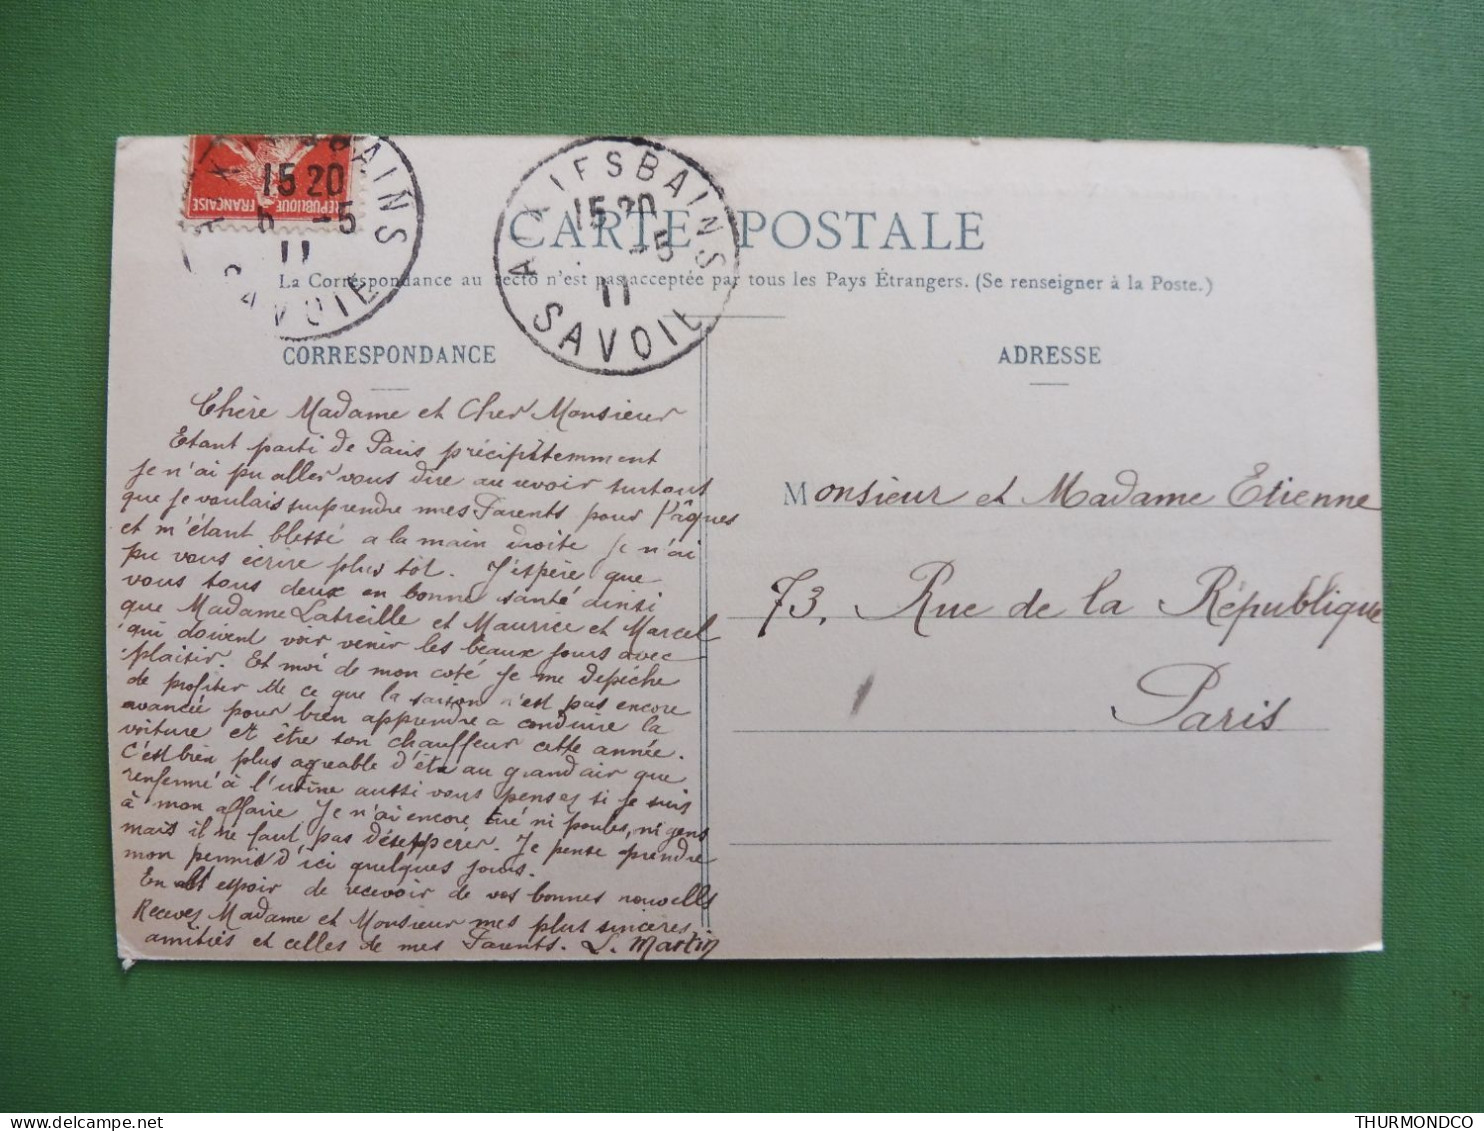 15 20
-5
11
BAINS
SAVOIE
REPUBLIQUE FRANÇAISE
AIX LES BAINS
15 20
-5
11
SAVOIE
CARTE POSTALE
La Correspondance au recto n'est pas acceptée par tous les Pays Étrangers. (Se renseigner à la Poste.)
CORRESPONDANCE
Chère Madame et Cher Monsieur
Etant parti de Paris précipitemment
je n'ai pu aller vous dire au revoir surtout
que je voulais surprendre mes Parents pour Pâques
et m'étant blessé a la main droite je n'ai
pu vous écrire plus tôt. J'espère que
vous tous deux en bonne santé ainsi
que Madame Latreille et Maurice et Marcel
qui doivent voir venir les beaux jours avec
plaisir. Et moi de mon coté je me depêche
de profiter de ce que la saison n'est pas encore
avancée pour bien apprendre a conduire la
voiture et être son chauffeur cette année.
C'est bien plus agreable d'être au grand air que
renfermé à l'usine aussi vous pensez si je suis
à mon affaire Je n'ai encore tué ni poules, ni gens
mais il ne faut pas désespérer. Je pense prendre
mon permis d'ici quelques jours.
En espoir de recevoir de vos bonnes nouvelles
Recevez Madame et Monsieur mes plus sinceres
amitiés et celles de mes Parents. L. Martin
ADRESSE
Monsieur et Madame Etienne
73, Rue de la République
Paris
THURMONDCO